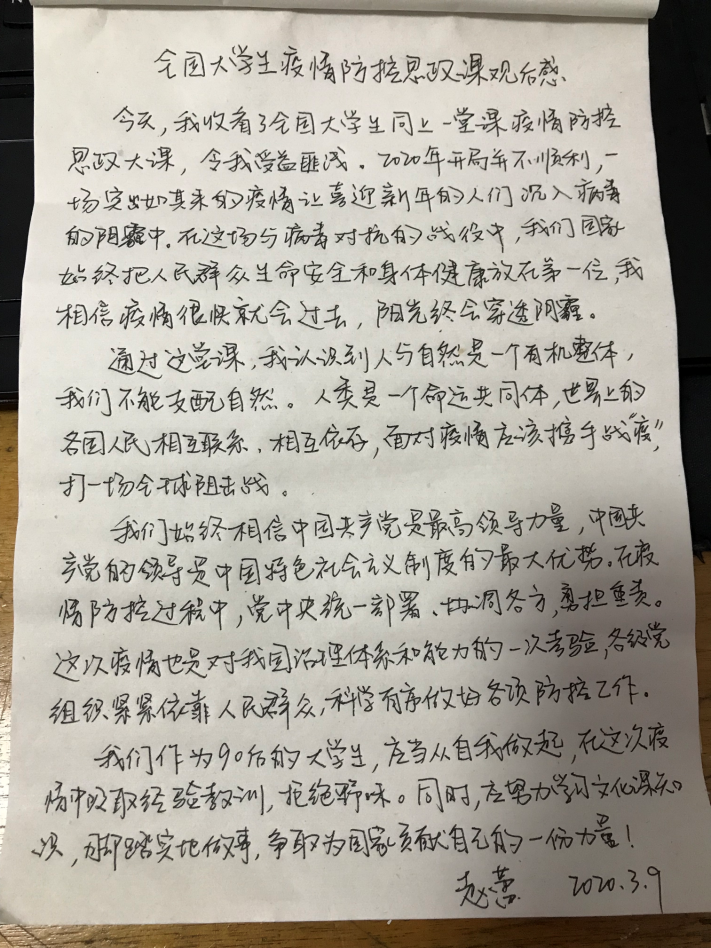 全国大学生疫情防控思政课观后感
今天，我收看了全国大学生同上一堂课疫情防控
思政大课，令我受益匪浅。2020年开局并不顺利，一
场突如其来的疫情让喜迎新年的人们沉入病毒
的阴霾中。在这场与病毒对抗的战役中，我们国家
始终把人民群众生命安全和身体健康放在第一位，我
相信疫情很快就会过去，阳光终会穿透阴霾。
通过这堂课，我认识到人与自然是一个有机整体，
我们不能支配自然。人类是一个命运共同体，世界上的
各国人民相互联系、相互依存，面对疫情应该携手战“疫”，
打一场全球阻击战。
我们始终相信中国共产党是最高领导力量，中国共
产党的领导是中国特色社会主义制度的最大优势。在疫
情防控过程中，党中央统一部署、协调各方，勇担重责。
这次疫情也是对我国治理体系和能力的一次考验，各级党
组织紧紧依靠人民群众，科学有序做好各项防控工作。
我们作为90后的大学生，应当从自我做起，在这次疫
情中吸取经验教训，拒绝野味。同时，应努力学习文化课知
识，脚踏实地做事，争取为国家贡献自己的一份力量！
赵 2020.3.9